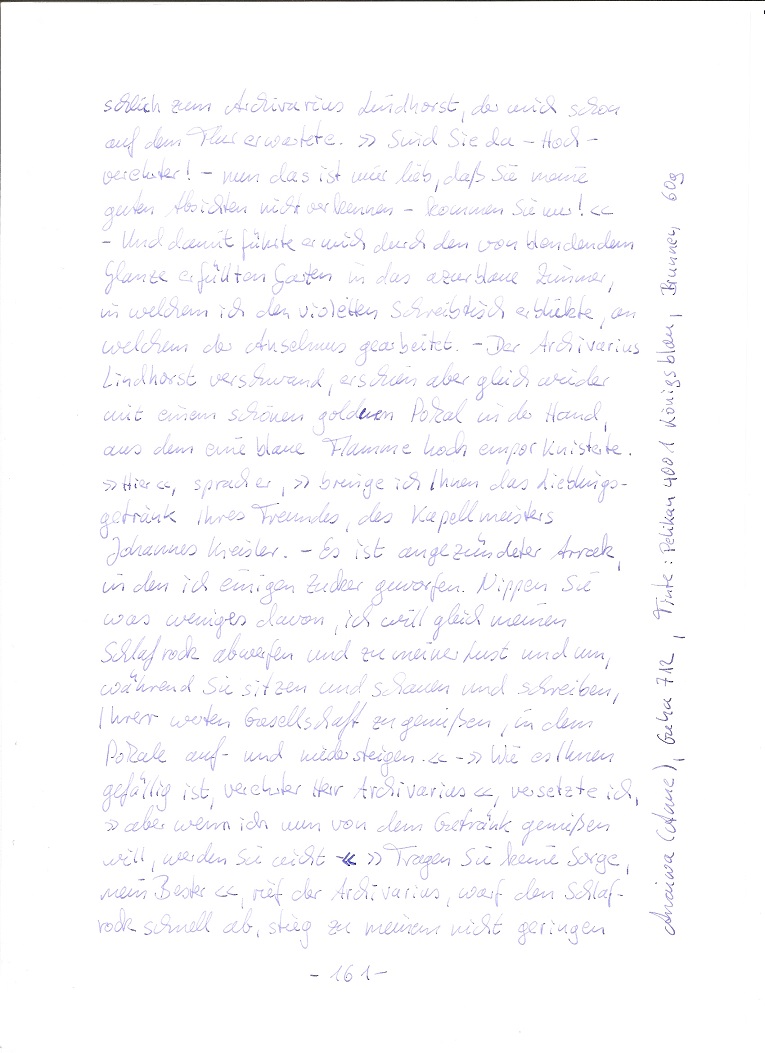 schlich zum Archivarius Lindhorst, der mich schon
auf dem Flur erwartete. »Sind Sie da – Hoch-
verehrter! – nun das ist mir lieb, daß Sie meine
guten Absichten nicht verkennen – kommen Sie nur!«
– Und damit führte er mich durch den von blendendem
Glanze erfüllten Garten in das azurblaue Zimmer,
in welchem ich den violetten Schreibtisch erblickte, an
welchem der Anselmus gearbeitet. – Der Archivarius
Lindhorst verschwand, erschien aber gleich wieder
mit einem schönen goldnen Pokal in der Hand,
aus dem eine blaue Flamme hoch emporknisterte.
»Hier«, sprach er, »bringe ich Ihnen das Lieblings-
getränk Ihres Freundes, des Kapellmeisters
Johannes Kreisler. – Es ist angezündeter Arrak,
in den ich einigen Zucker geworfen. Nippen Sie
was weniges davon, ich will gleich meinen
Schlafrock abwerfen und zu meiner Lust und um,
während Sie sitzen und schauen und schreiben,
Ihrer werten Gesellschaft zu genießen, in dem
Pokale auf- und niedersteigen.« – »Wie es Ihnen
gefällig ist, verehrter Herr Archivarius«, versetzte ich,
»aber wenn ich nun von dem Getränk genießen
will, werden Sie nicht –« »Tragen Sie keine Sorge,
mein Bester«, rief der Archivarius, warf den Schlaf-
rock schnell ab, stieg zu meinem nicht geringen
– 161 –
Tinte: Pelikan 4001 Königsblau, Brunnen 60g